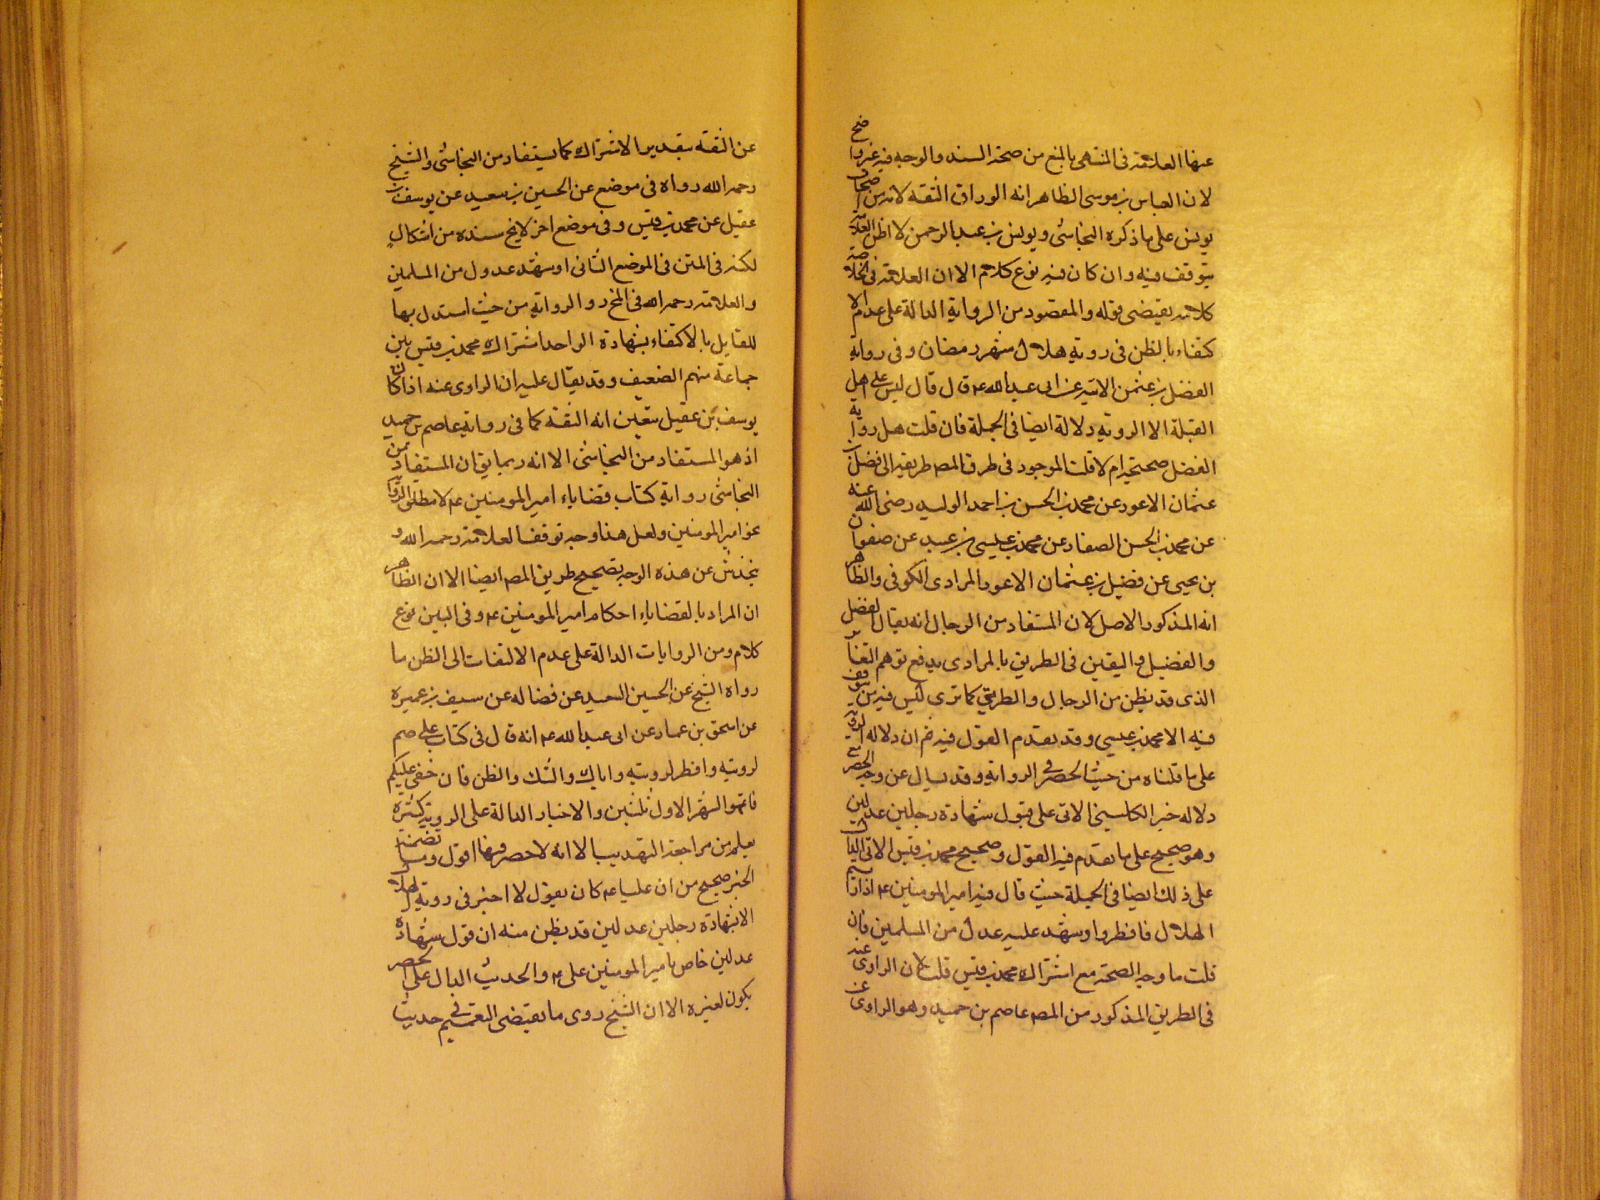 عنها العلامة فى المنتهى بالمنع من صحة السند والوجه فيه غير واضح
لان العباس بن موسى الظاهر انه الوراق الثقة لانه من اصحاب
يونس على ما ذكره النجاشى ويونس بن عبد الرحمن لا اظن العلامة
يتوقف فيه وان كان فيه نوع كلام الا ان العلامة فى الخلاصة
كلامه يقتضى قوله والمقصود من الرواية الدالة على عدم الا
كتفاء بالظن فى روية هلال شهر رمضان وفى رواية
الفضل بن عثمن الاتية عن ابى عبد الله ع قال قال ليس على اهل
القبلة الا الروية دلالة ايضا فى الجملة فان قلت هل رواية
الفضل صحيحة ام لا قلت الموجود فى طرق المص طريقه الى فضل بن
عثمان الاعور عن محمد بن الحسن بن احمد الوليد رضى الله عنه
عن محمد بن الحسن الصفار عن محمد بن عيسى بن عبيد عن صفوان
بن يحيى عن فضيل بن عثمان الاعور المرادى الكوفى والظاهر
انه المذكور الاصل لان المستفاد من الرجال انه يقال لفضل
والفضيل واليقين فى الطريق بالمرادى يدفع توهم التغاير
الذى قد يظن من الرجال والطريق كما ترى ليس فيه من يتوقف
فيه الا محمد بن عيسى وقد تقدم القول فيه ثم ان دلالة الرواية
على ما قلناه من حيث الحصر فى الرواية وقد يسال عن وجه الحصر مع
دلالة خبر الكلينى الاتى على قبول شهادة رجلين عدلين
وهو صحيح على ما تقدم فيه القول وصحيح محمد بن قيس الاتى الدال
على ذلك ايضا فى الجملة حيث قال فيه امير المومنين ع اذا رايتم
الهلال فافطروا وشهد عليه عدل من المسلمين فان
قلت ما وجه الصحة مع اشتراك محمد بن قيس قلت لان الراوى عنه
فى الطريق المذكور من المص عاصم بن حميد وهو الراوى عن
عن الثقة بتقدير الاشتراك كما يستفاد من النجاشى والشيخ
رحمه الله رواه فى موضع عن الحسين بن سعيد عن يوسف بن
عقيل عن محمد بن قيس وفى موضع اخر لا يخ سنده من اشكال
لكنه فى المتن فى الموضع الثانى او شهد عدول من المسلمين
والعلامة رحمه الله فى المخ رد الرواية من حيث استدل بها
للقايل بالاكتفاء بشهادة الواحد باشتراك محمد بن قيس بين
جماعة منهم الضعيف وقد يقال عليه ان الراوى عنه اذا كان
يوسف بن عقيل تعين انه الثقة كما فى رواية عاصم بن حميد
اذ هو المستفاد من النجاشى الا انه ربما يق ان المستفاد من
النجاشى رواية كتاب قضاياء امير المومنين ع لا مطلق الرواية
عن امير المومنين ولعل هذا وجه توقف العلامة رحمه الله و
يخدش عن هذه الوجه تصحيح طريق المص ايضا الا ان الظاهر
ان المراد بالقضاياء احكام امير المومنين ع وفى البين نوع
كلام ومن الروايات الدالة على عدم الالتفات الى الظن ما
رواه الشيخ عن الحسين السعيد عن فضاله عن سيف بن عميرة
عن اسحق بن عمار عن ابى عبد الله ع انه قال فى كتاب على صم
لرويته وافطر لرويته واياك والشك والظن فان خفى عليكم
فاتموا الشهر الاول ثلثين والاخبار الدالة على الروية كثيرة
يعلم من مراجعة التهذيب الا انه لا حصر فيها اقول وما تضمنه
الخبر صحيح من ان عليا ع كان يقول لا اجيز فى روية الهلال
الا شهادة رجلين عدلين قد يظن منه ان قول شهادة
عدلين خاص بامير المومنين على ع والحديث الدال على الحصر
يكون لغيره الا ان الشيخ روى ما يقتضى التعميم فى حديث